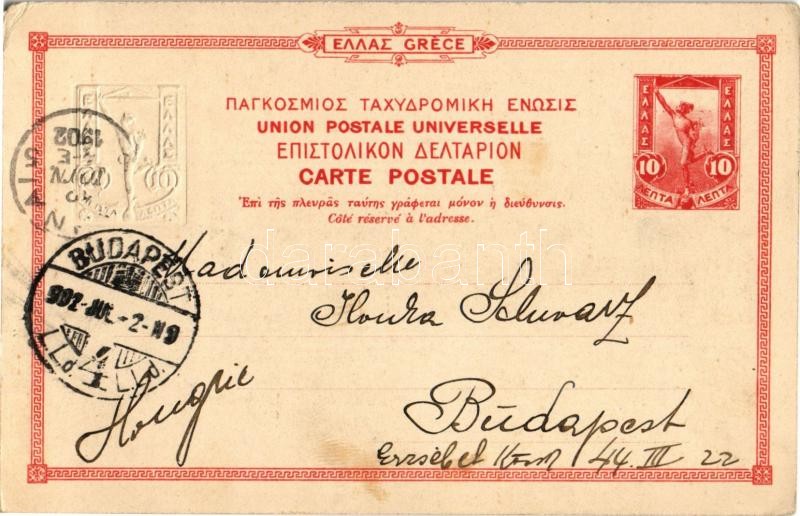 ΕΛΛΑΣ GRÈCE
ΠΑΓΚΟΣΜΙΟΣ ΤΑΧΥΔΡΟΜΙΚΗ ΕΝΩΣΙΣ
UNION POSTALE UNIVERSELLE
ΕΠΙΣΤΟΛΙΚΟΝ ΔΕΛΤΑΡΙΟΝ
CARTE POSTALE
Ἐπὶ τῆς πλευρᾶς ταύτης γράφεται μόνον ἡ διεύθυνσις.
Côté réservé à l'adresse.
ΕΛΛΑΣ ΕΛΛΑΣ
10 10
ΛΕΠΤΑ ΛΕΠΤΑ
1902
BUDAPEST
902 JUL -2
Mademoiselle
Ilonka Schwarz
Hongrie
Budapest
Erzsébet 44. III 22
darabanth